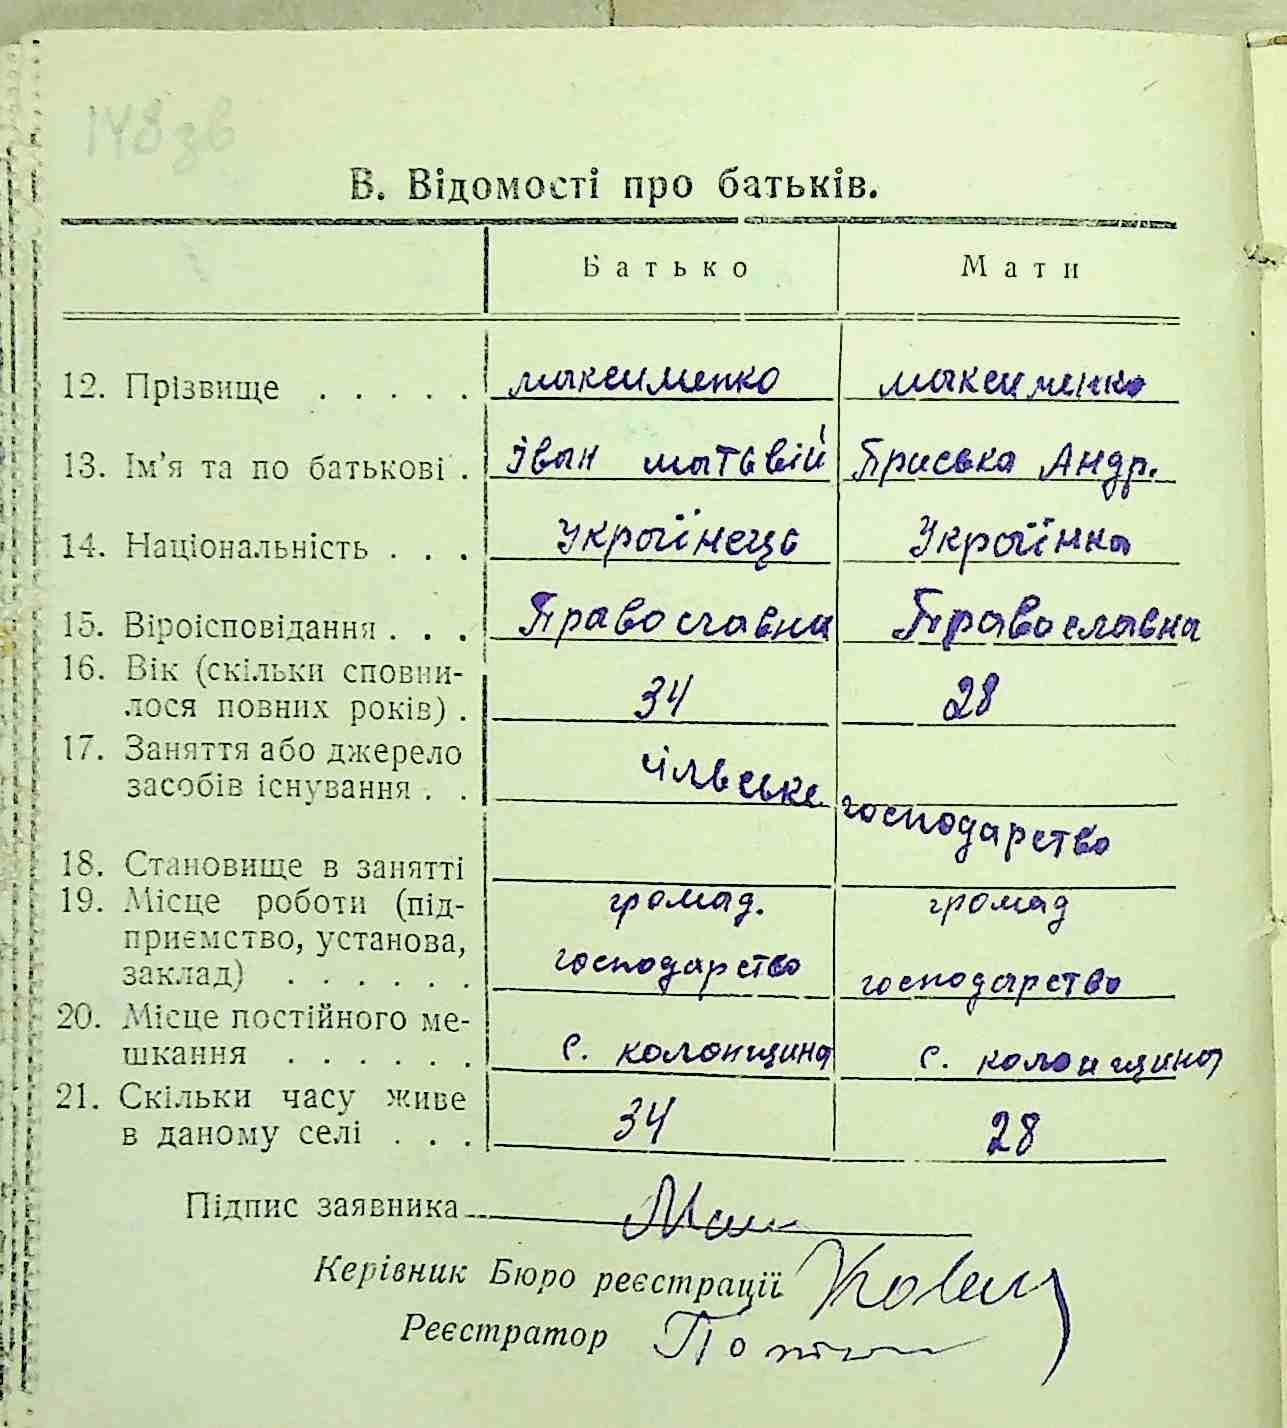 148 зв
В. Відомості про батьків.
Батько Мати
12. Прізвище . . . . . Максименко Максименко
13. Ім'я та по батькові . Іван Матвій Приська Андр.
14. Національність . . . Українець Українка
15. Віроісповідання . . . Православна Православна
16. Вік (скільки сповни-
лося повних років) . 34 28
17. Заняття або джерело
засобів існування . . сільське господарство
18. Становище в занятті
19. Місце роботи (під- громад. громад
приємство, установа,
заклад) . . . . . . господарство господарство
20. Місце постійного ме-
шкання . . . . . . с. Колонщина с. Колонщина
21. Скільки часу живе
в даному селі . . . 34 28
Підпис заявника
Керівник Бюро реєстрації
Реєстратор